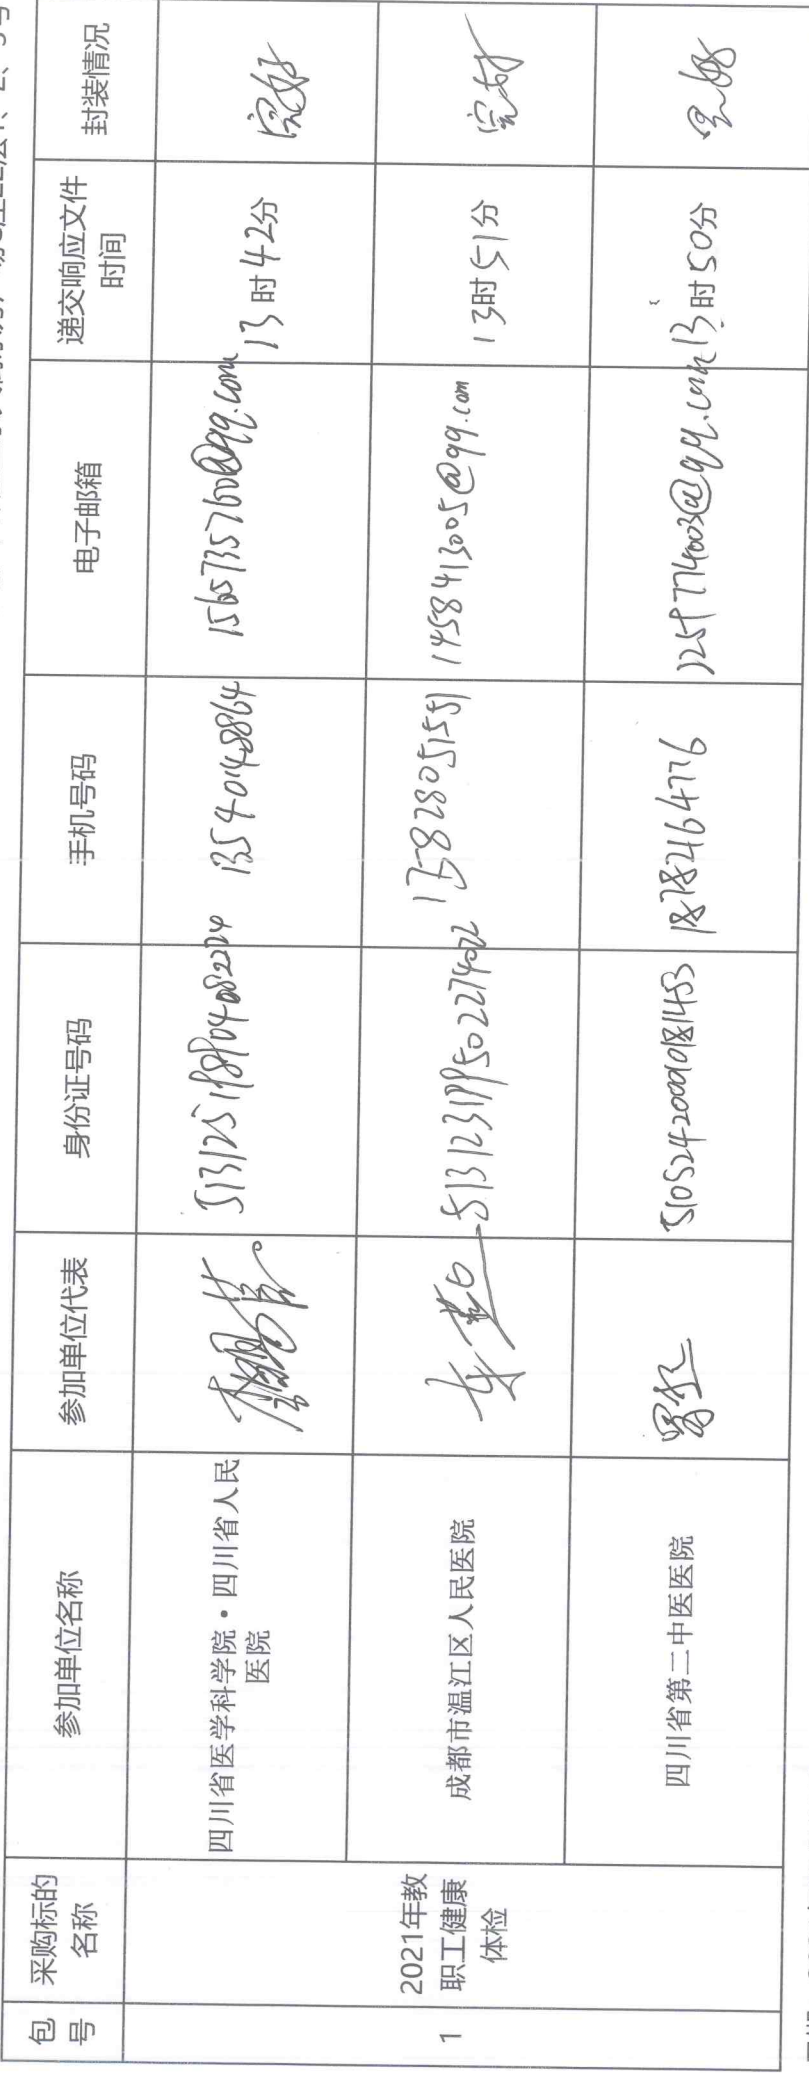 包号
采购标的名称
参加单位名称
参加单位代表
身份证号码
手机号码
电子邮箱
递交响应文件时间
封装情况
1
2021年教职工健康体检
四川省医学科学院·四川省人民医院
13540148864
1565735760@qq.com
13时42分
完好
成都市温江区人民医院
513123199502274022
175828051551
1458413005@qq.com
13时51分
完好
四川省第二中医医院
510524200010181453
18782164776
1259774003@qq.com
13时50分
完好